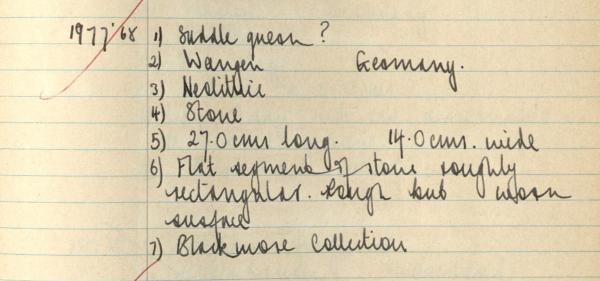 1977'68 1) Saddle quern ?
2) Wangen Germany.
3) Neolithic
4) Stone
5) 27.0 cms long. 14.0 cms. wide
6) Flat segment of stone roughly
rectangular. Rough but worn
surface
7) Blackmore Collection